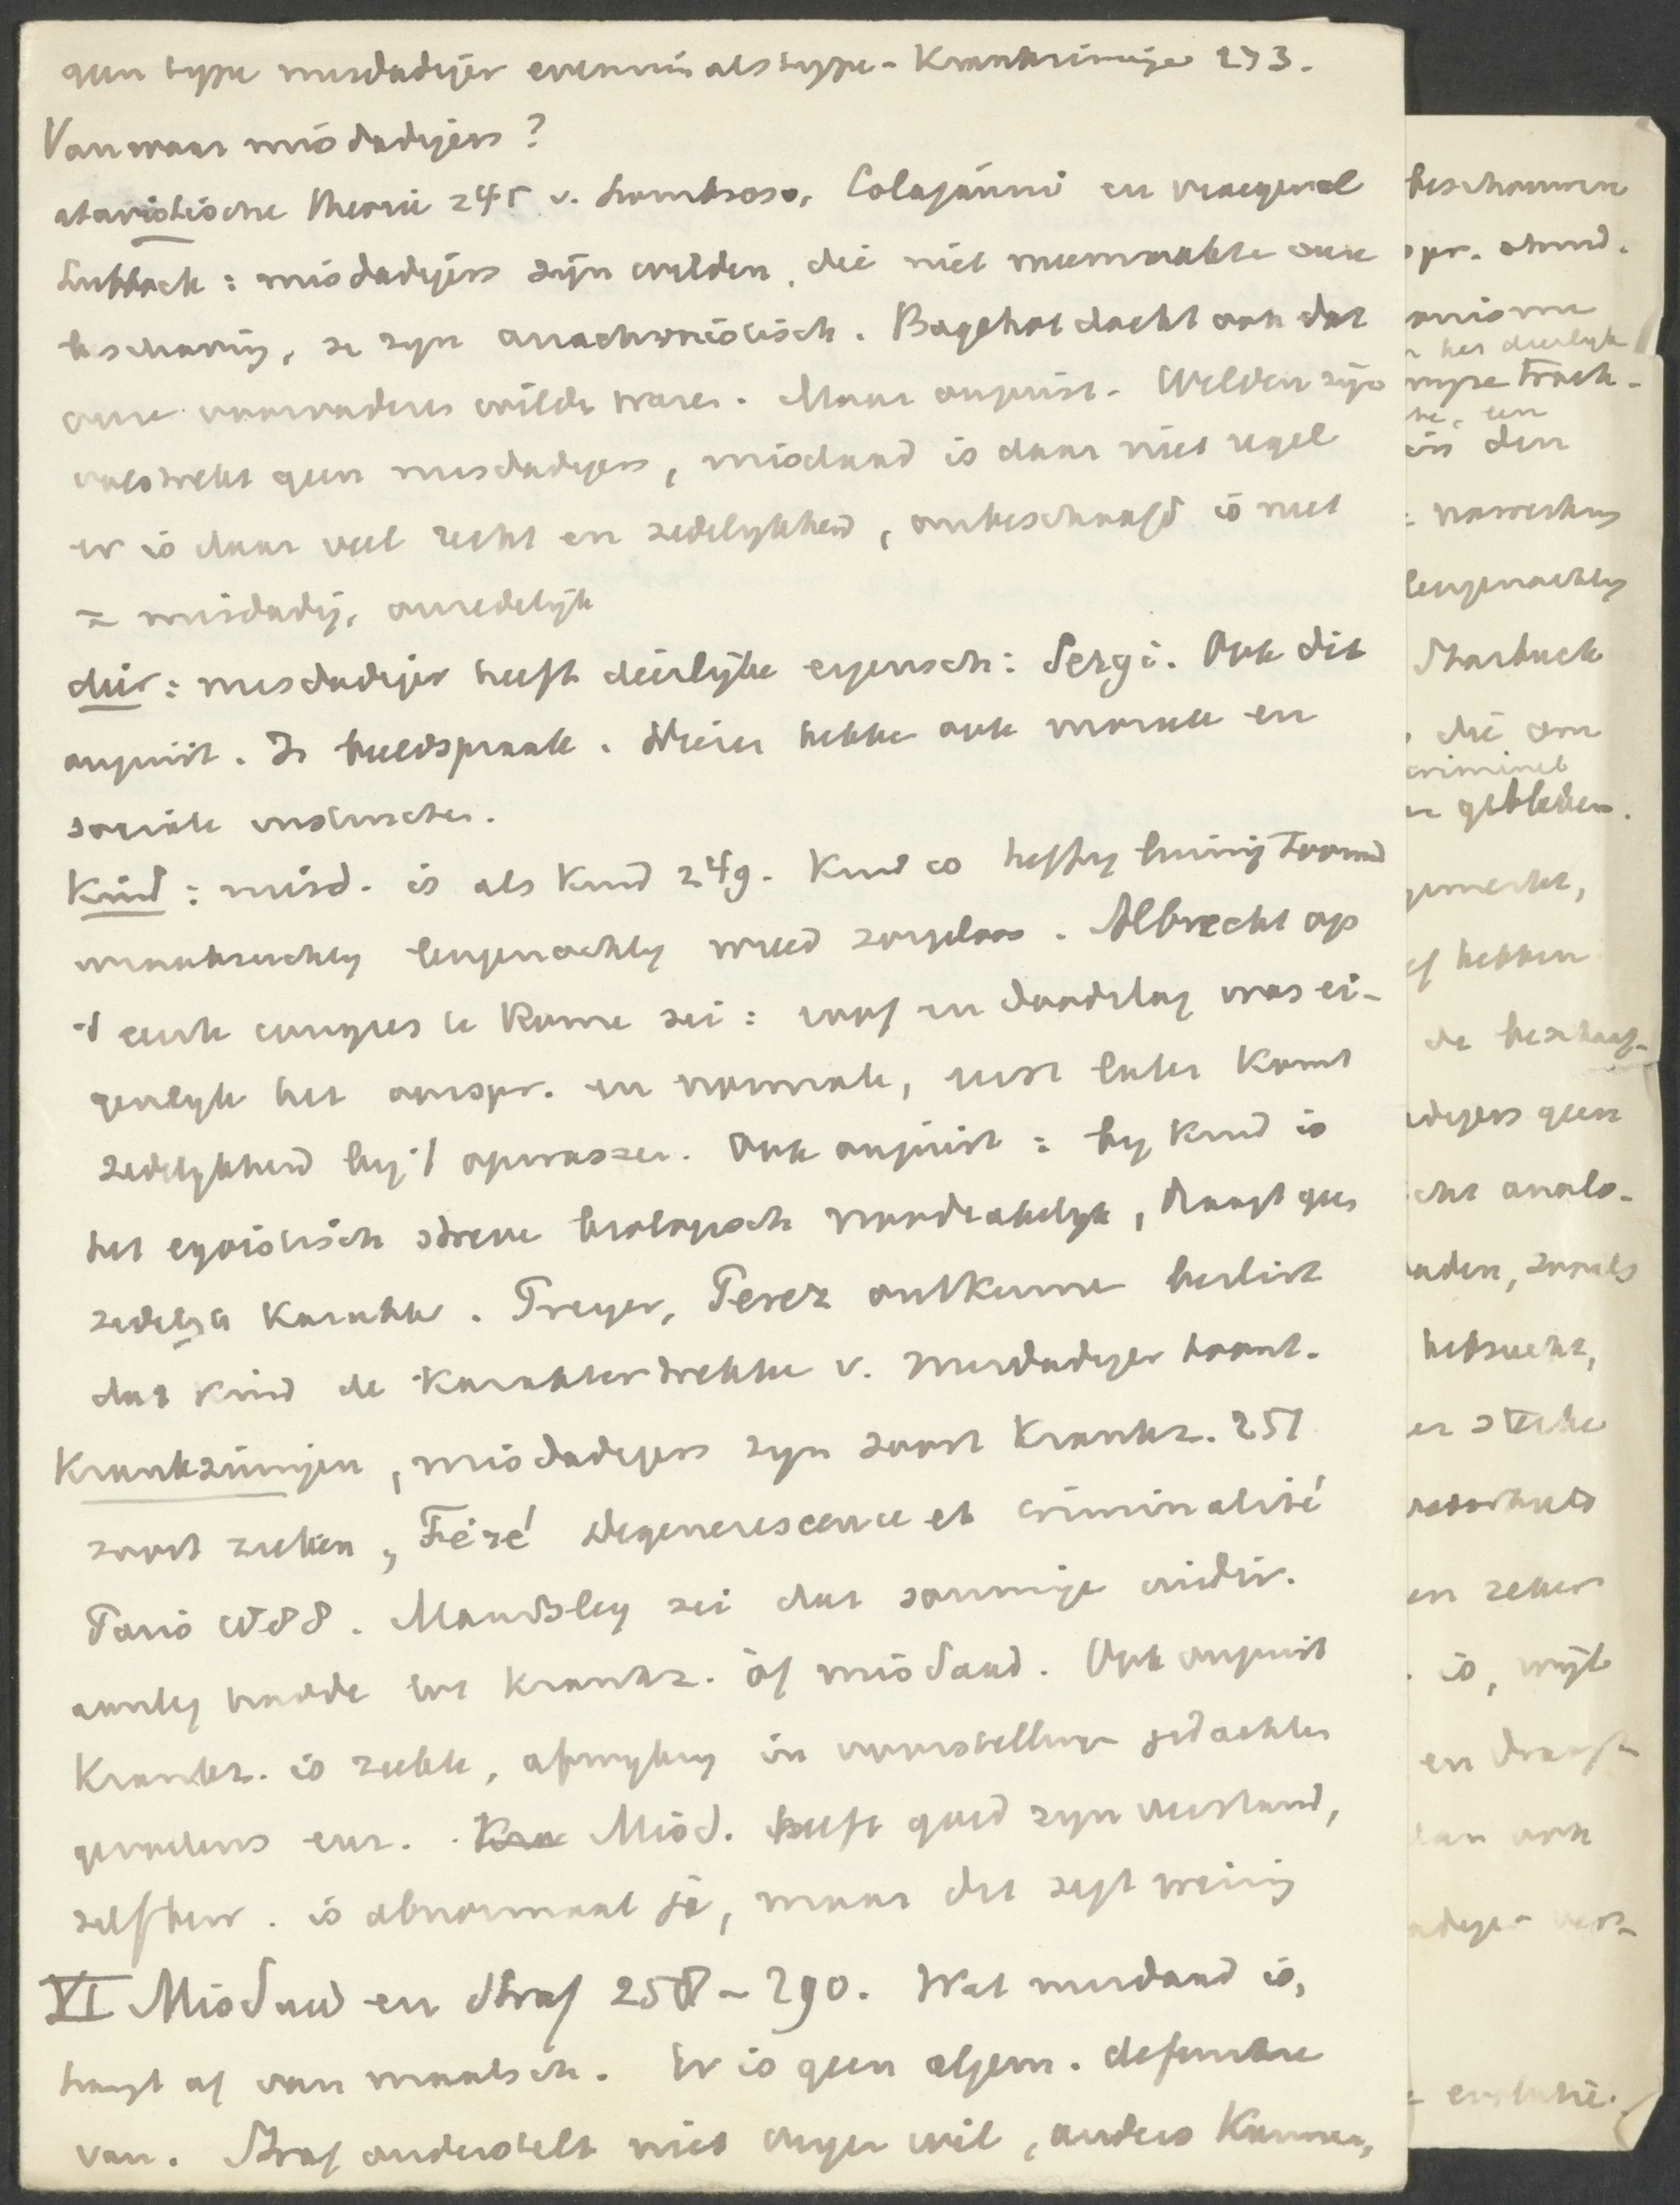 geen type misdadiger evenmin als type-Krankzinnige 273.
Vanwaar misdadigers?
atavistische theorie 245 v. Lombroso, Colajanni en vroeger al
Lubbock: misdadigers zijn wilden, die niet meemaakte onze
beschaving, ze zyn anachronistisch. Bagehot dacht ook dat
onze voorvaders wilde waren. Maar onjuist. Wilden zijn
volstrekt geen misdadigers, misdaad is daar niet regel
er is daar veel recht en zedelykheid, onbeschaafd is niet
= misdadig, onzedelijk
dier: misdadiger heeft dierlijke eigensch: Sergi. Ook dit
onjuist. Is beeldspraak. Dieren hebben ook morele en
sociale instincten.
Kind: misd. is als Kind 249. Kind is heftig toornig
wraakzuchtig leugenachtig wreed zorgeloos. Albrecht op
't eerste congres te Rome zei: roof en doodslag was ei-
genlyk het oorspr. en normale, eerst later komt
zedelykheid by 't opwassen. Ook onjuist: by Kind is
het egoistisch streven biologisch noodzakelyk, draagt geen
zedelyk Karakter. Preyer, Perez ontkennen beslist
dat kind de Karaktertrekken v. misdadiger toont.
Krankzinnigen, misdadigers zyn soort Krankz. 251
soort zieken, Féré Degenerescence et criminalité
Paris 1888. Maudsley zei dat sommige individ.
aanleg hadde tot Krankz. òf misdaad. Ook onjuist
Krankz. is ziekte, afwyking in voorstellingen gedachten
gevoelens enz. Misd. heeft goed zyn verstand,
zelfbew. is abnormaal ja, maar dit zegt weinig
VI Misdaad en Straf 258-290. Wat misdaad is,
hangt af van maatsch. Er is geen algem. definitie
van. Straf onderstelt niet eigen wil, anders Kunnen,
beschouwen
opr. stand.
anisme
het dierlyk
Track-
in den
leugenachtig
Starbuck
die om
crimineel
gebleken.
hebben
de beschaaf-
adigers geen
analo-
aden, zooals
hebzucht,
sterke
en zeker
is, wijl
en draagt
dan ook
evolutie.